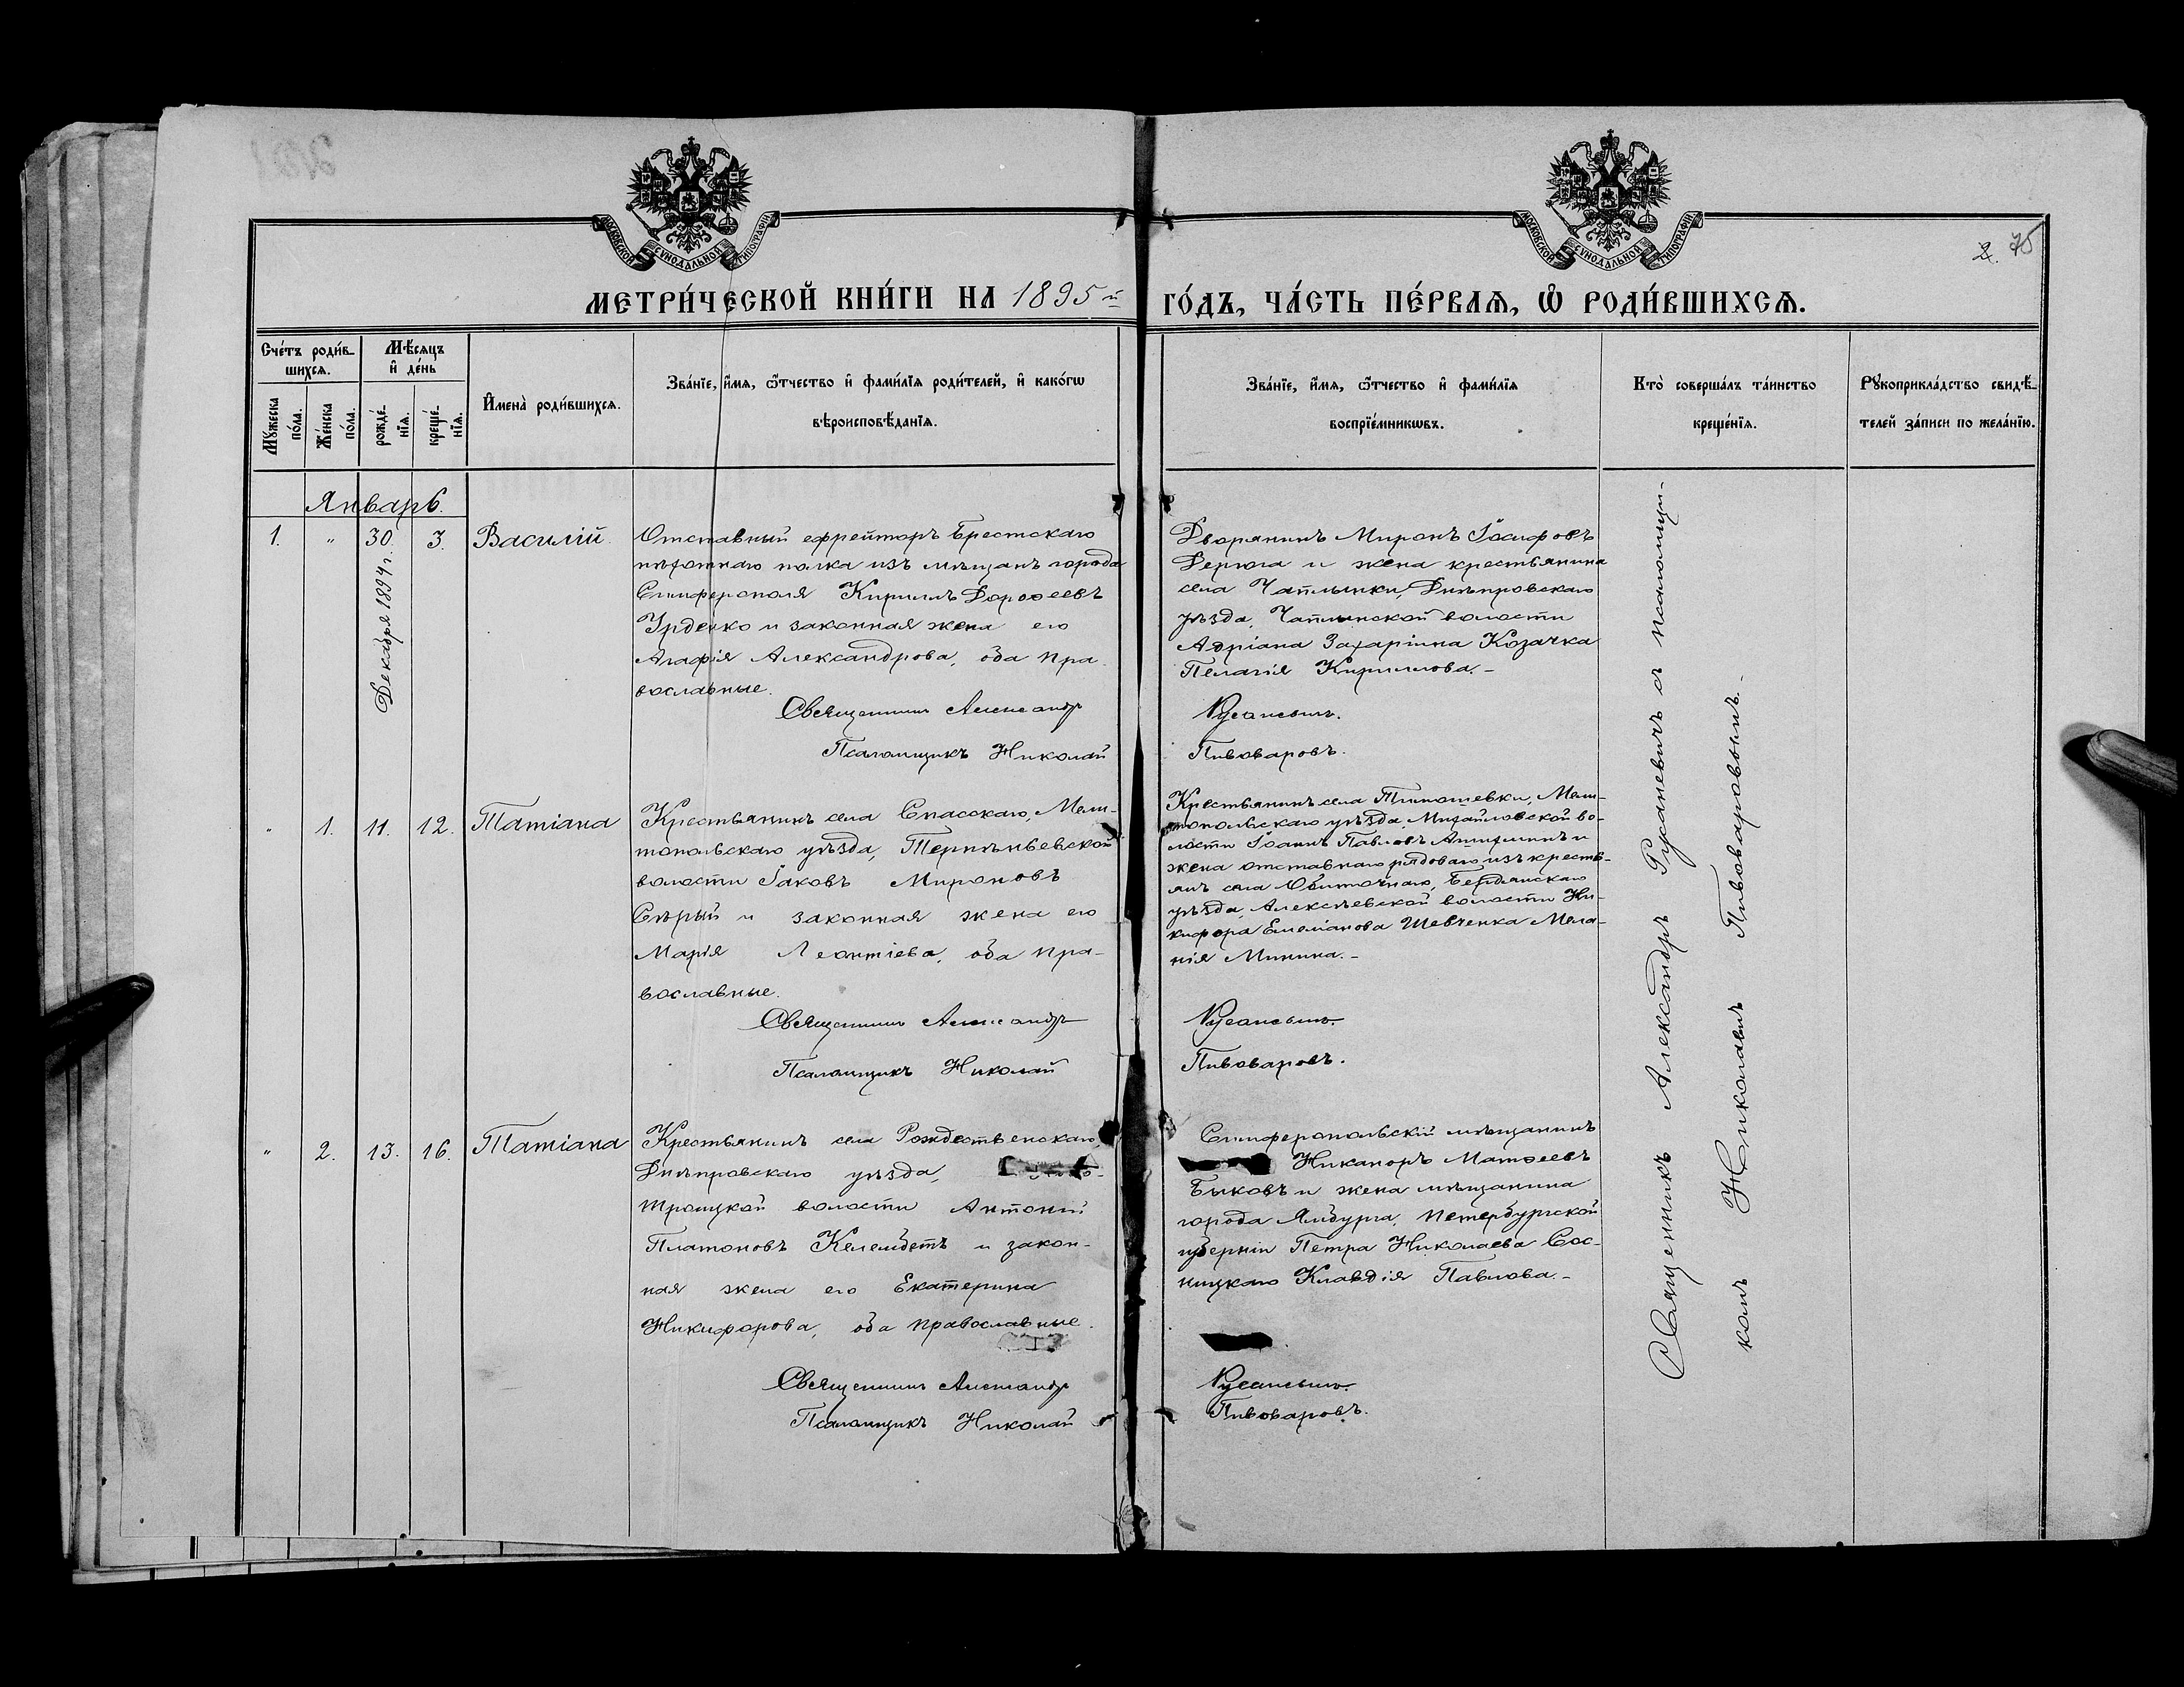 МОСКОВСКОЙ СѴНОДАЛЬНОЙ ТИПОГРАФІИ
МОСКОВСКОЙ СѴНОДАЛЬНОЙ ТИПОГРАФІИ
2. 75
МЕТРИ́ЧЕСКОЙ КНИ́ГИ НА 1895 й ГО́ДЪ, ЧА́СТЬ ПЕ́РВАѦ, Ѡ҆ РОДИ́ВШИХСѦ.
Сче́тъ роди́в-
шихсѧ.
Мꙋ́жеска по́ла.
Же́нска по́ла.
Мѣ́сѧцъ
и҆ де́нь
рожде́-
нїѧ.
креще́-
нїѧ.
И҆мена̀ роди́вшихсѧ.
Зва́нїе, и҆́мѧ, ѻ҆́тчество и҆ фами́лїѧ роди́телей, и҆ како́гѡ
вѣроисповѣ́данїѧ.
Зва́нїе, и҆́мѧ, ѻ҆́тчество и҆ фами́лїѧ
воспрїе́мникѡвъ.
Кто̀ соверша́лъ та́инство
креще́нїѧ.
Рꙋкоприкла́дство свидѣ́-
телей за́писи по жела́нїю.
Январь.
1. " 30. 3. Василій.
Декабря 1894 г.
Отставный ефрейторъ Брестскаго
пѣхотнаго полка изъ мѣщанъ города
Симферополя Кириллъ Дорофеевъ
Урденко и законная жена его
Агафія Александрова, оба пра-
вославные.
Священникъ Александр
Псаломщикъ Николай
Дворянинъ Миронъ Іосифовъ
Дерюга и жена крестьянина
села Чаплынки, Днѣпровскаго
уѣзда, Чаплынской волости
Адріана Захаріина Козачка
Пелагія Кириллова.-
Русаневичъ.
Пивоваровъ.
" 1. 11. 12. Татіана
Крестьянинъ села Спасскаго, Мели-
топольскаго уѣзда, Терпѣньевской
волости Іаковъ Мироновъ
Сѣрый и законная жена его
Марія Леонтіева, оба пра-
вославные.
Священникъ Александръ
Псаломщикъ Николай
Крестьянинъ села Тимошевки, Мели-
топольскаго уѣзда, Михайловской во-
лости Іоаннъ Павловъ
жена отставнаго рядоваго изъ кресть-
янъ села Обиточнаго, Бердянскаго
уѣзда, Алексѣевской волости Ни-
кифора Емеліанова Шевченка Мела-
нія Минина.-
Русаневичъ.
Пивоваровъ.
" 2. 13. 16. Татіана
Крестьянинъ села Рождественскаго,
Днѣпровскаго уѣзда,
Троицкой волости Антоній
Платоновъ Келембетъ и закон-
ная жена его Екатерина
Никифорова, оба православные.
Священникъ Александр
Псаломщикъ Николай
Симферопольскій мѣщанинъ
Никаноръ Матѳеевъ
Быковъ и жена мѣщанина
города Ямбурга, Петербургской
губерніи Петра Николаева Сос-
ницкаго Клавдія Павлова.-
Русаневичъ.
Пивоваровъ.
Священникъ Александръ Русаневичъ съ псаломщи-
комъ Николаемъ Пивоваровымъ.-